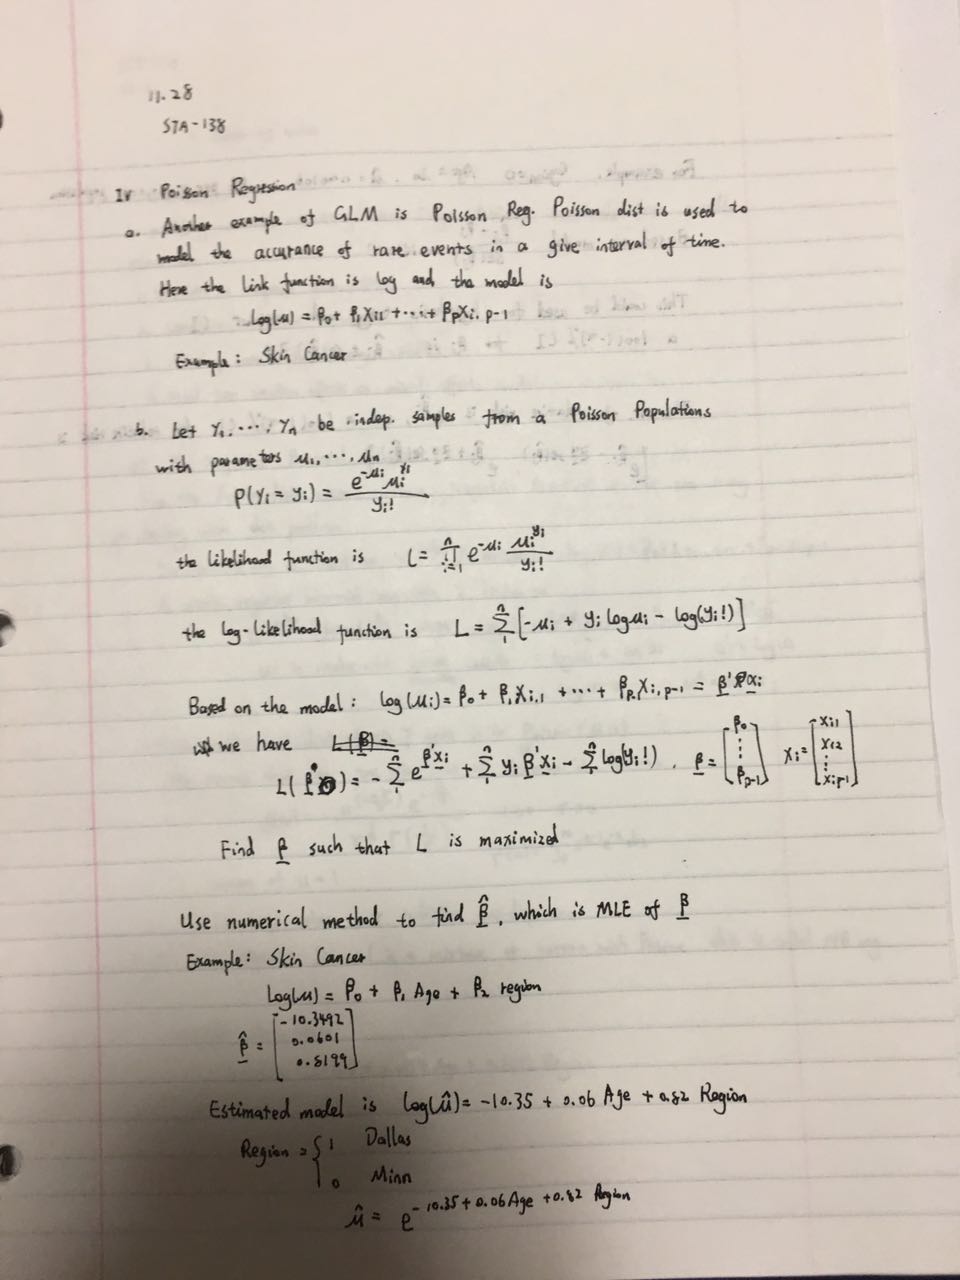 11.28
STA-138
IV Poisson Regression
a. Another example of GLM is Poisson Reg. Poisson dist is used to
model the accurance of rare events in a give interval of time.
Here the link function is log and the model is
Log(μ) = β₀ + β₁Xi1 + ... + βpXi, p-1
Example: Skin Cancer
b. Let Y₁, ..., Yn be indep. samples from a Poisson Populations
with parameters μ₁, ..., μn
P(Yi = yi) = e^-μi μi^yi / yi!
the likelihood function is L = ∏ i=1 n e^-μi μi^yi / yi!
the log-likelihood function is L = Σ 1 n [-μi + yi log μi - log(yi!)]
Based on the model: log(μi) = β₀ + β₁Xi,1 + ... + βp Xi,p-1 = β'xi
we have L(β) =
L(β) = - Σ 1 n e^β'xi + Σ 1 n yi β'xi - Σ 1 n log(yi!). β = [β₀ ⋮ βp-1] Xi = [Xi1 Xi2 ⋮ Xip-1]
Find β such that L is maximized
Use numerical method to find β̂, which is MLE of β
Example: Skin Cancer
Log(μ) = β₀ + β₁ Age + β₂ region
β̂ = [-10.3492 0.0601 0.8199]
Estimated model is log(μ̂) = -10.35 + 0.06 Age + 0.82 Region
Region = { 1 Dallas
0 Minn
μ̂ = e^-10.35 + 0.06 Age + 0.82 Region